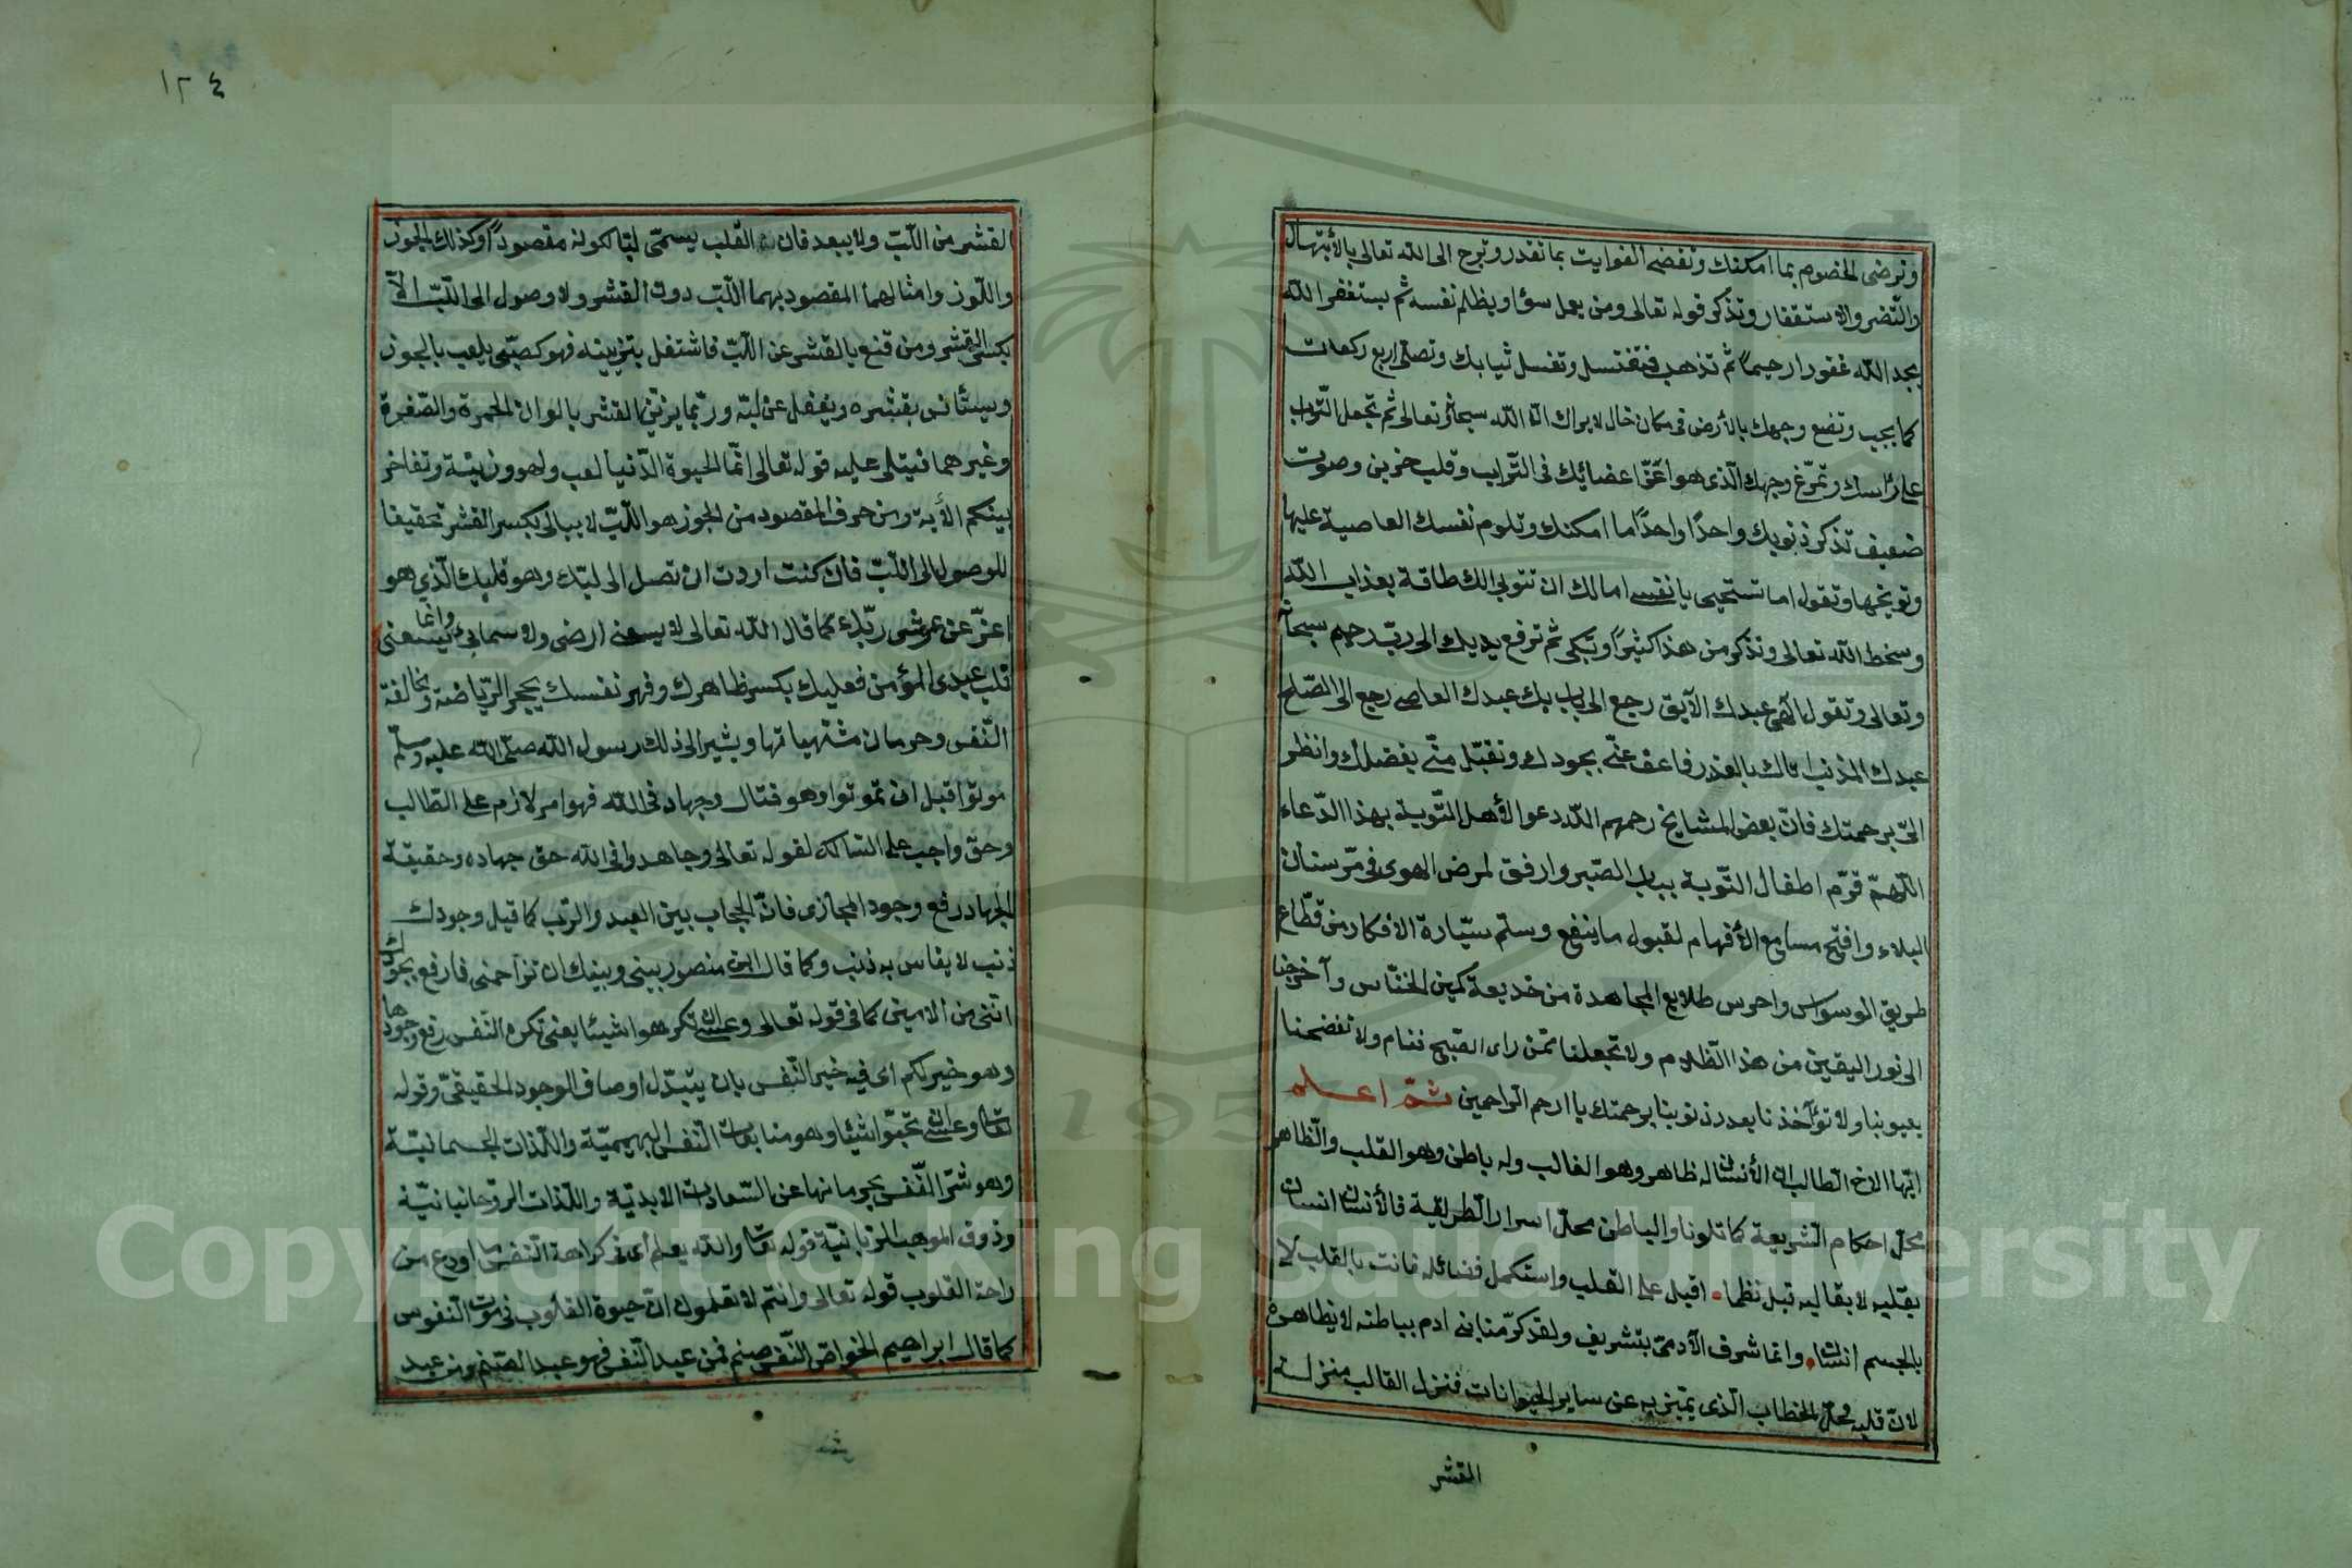 وترضى الخصوم بما امكنك وتقضى الفوايت بما تقدر وترجع الى الله تعالى بالأبتهال
والتضر والاستغفار وتذكر قوله تعالى ومن يعمل سؤا ويظلم نفسه ثم يستغفر الله
يجد الله غفورا رحيماً ثم تذهب فتغتسل وتغسل ثيابك وتصلى اربع ركعات
كما يجب وتضع وجهك بالأرض فى مكان خال لا يراك الا الله سبحانه وتعالى ثم تجعل التراب
على رأسك وتمرّغ وجهك الّذى هو اعزّ اعضائك فى التّراب وقلب حزين وصوت
ضعيف تذكر ذنوبك واحدًا واحدًا ما امكنك وتلوم نفسك العاصية عليها
وتوبخها وتقول اما تستحيى يا نفسى اما لك ان تتوبى الك طاقة بعذاب الله
وسخط الله تعالى وتذكر من هذا كثيرًا وتبكى ثم ترفع يديك الى ربّ رحيم سبحانه
وتعالى وتقول الهى عبدك الآبق رجع الى بابك عبدك العاصى رجع الى الصّلح
عبدك المذنب اتاك بالعذر فاعف عنّى بجودك وتقبّل منّى بفضلك وانظر
الىّ برحمتك فانّ بعض المشايخ رحمهم الله دعوا لأهل التّوبة بهذا الدّعاء
اللّهمّ قوّم اطفال التّوبة بباب الصّبر وارفق لمرض الهوى فى مرّستان
البلاء وافتح مسامع الأفهام لقبول ما ينفع وسلّم سيّارة الافكار من قطّاع
طريق الوسواس واحرس طلايع المجاهدة من خديعة كمين الخنّاس وآخرجنا
الى نور اليقين من هذا الظّلام ولا تجعلنا ممّن راى القبيح فنام ولا تفضحنا
بعيوبنا ولا تؤآخذنا بعدد ذنوبنا برحمتك يا ارحم الرّاحمين ثمّ اعلم
ايّها الاخ الطّالب ان الأنسان له ظاهر وهو القالب وله باطن وهو القلب والظّاهر
محلّ احكام الشّريعة كما تلونا والباطن محلّ اسرار الطّريقة فالأنسان انسان
بقلبه لا بقالبه قيل نظما اقبل على القلب واستكمل فضائله فانت بالقلب لا
بالجسم انسان وانّما شرف الآدمىّ بتشريف ولقد كرّمنا بنى ادم بباطنه لا بظاهره
لانّ قلبه محلّ الخطاب الّذى يتميّز به عن ساير الحيوانات فنزل القالب منزلة
القشر
١٢٤
القشر من اللّبّ ولا يبعد فان القلب يسمّى لبّا لكونه مقصوداً وكذلك الجوز
واللّوز وامثالهما المقصود بهما اللّبّ دون القشر ولا وصول الى اللّبّ الّا
بكسر القشر ومن قنع بالقشر عن اللّبّ فاشتغل بتزيينه فهو كصبّى يلعب بالجوز
ويستأنس بقشره ويغفل عن لبّه وربّما يزيّن القشر بالوان الحمرة والصّفرة
وغيرهما فيتلى عليه قوله تعالى انّما الحيوة الدّنيا لعب ولهو وزينة وتفاخر
بينكم الأية ومن عرف المقصود من الجوز هو اللّبّ لا يبالى بكسر القشر تحقيقا
للوصول الى اللّبّ فان كنت اردت ان تصل الى لبّك وهو قلبك الّذى هو
اعزّ عن عرش ربّك كما قال الله تعالى لا يسعنى ارضى ولا سمائى وانما يسعنى
قلب عبدى المؤمن فعليك بكسر ظاهرك وقهر نفسك بحجر الرّياضة ومخالفة
النّفس وحرمان مشتهياتها ويشير الى ذلك رسول الله صلّى الله عليه وسلّم
موتوا قبل ان تموتوا وهو قتال وجهاد فى الله فهو امر لازم على الطّالب
وحقّ واجب على السّالك لقوله تعالى وجاهدوا فى الله حق جهاده وحقيقة
الجهاد رفع وجود المجازى فانّ الحجاب بين العبد والرّب كما قيل وجودك
ذنب لا يقاس به ذنب وكما قال ابن منصور بينى وبينك انّ تزاحمنى فارفع بجودك
انّنى من الامين كما فى قوله تعالى وعسى ان تكرهوا شيئا يعنى تكره النّفس رفع وجودها
وهو خير لكم اى فيه خير النّفس بان يتبدّل اوصاف الوجود الحقيقىّ وقوله
تعالى وعسى ان تحبّوا شيئا وهو متابعات النّفس البهيميّة واللّذات الجسمانيّة
وهو شرّ النّفس بحرمانها عن السّعادات الابديّة واللّذات الروحانيانيّة
وذوق المواهب الربّانيّة قوله تعالى والله يعلم أى فى كراهة النّفس ما اودع من
راحة القلوب قوله تعالى وانتم لا تعلمون انّ حيوة القلوب فى موت النّفوس
كما قال ابراهيم الخواصّ النّفس صنم فمن عبد النّفس فهو عبد الصّنم ومن عبد